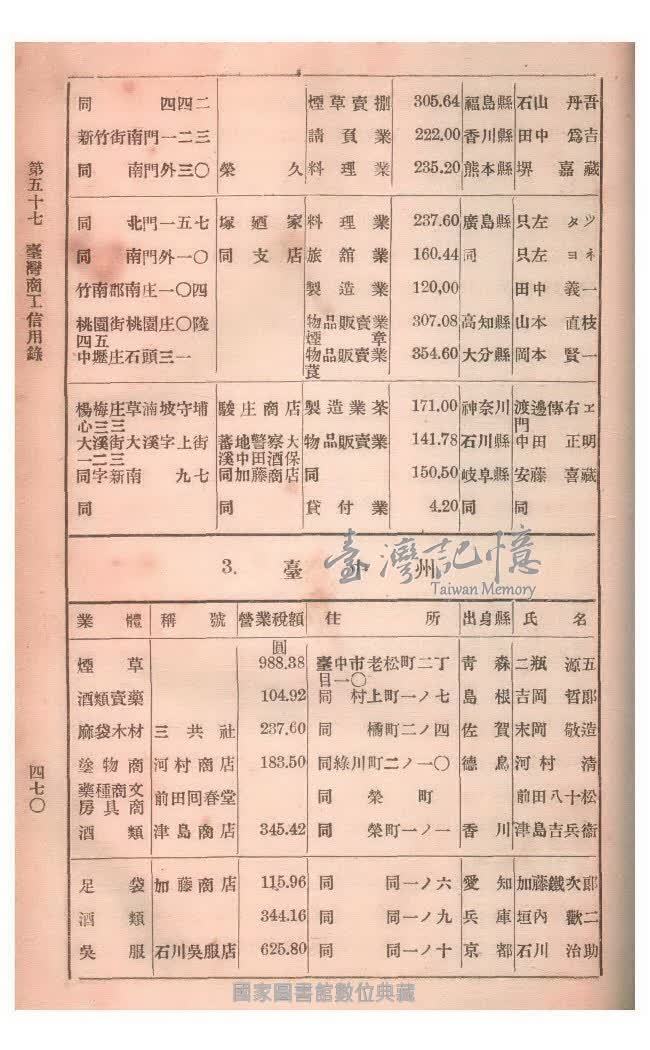 第五十七 臺灣商工信用錄
四七〇
同 四四二 煙草賣捌 305.64 福島縣 石山 丹吾
新竹街南門一二三 請負業 222.00 香川縣 田中 爲吉
同 南門外三〇 榮久 料理業 235.20 熊本縣 堺 嘉藏
同 北門一五七 塚廼家 料理業 237.60 廣島縣 只左 タツ
同 南門外一〇 同支店 旅館業 160.44 同 只左 ヨネ
竹南郡南庄一〇四 製造業 120,00 田中 義一
桃園街桃園庄〇陵 物品販賣業 307.08 高知縣 山本 直枝
四五 煙章
中壢庄石頭三一 物品販賣業 354.60 大分縣 岡本 賢一
楊梅庄草湳坡守埔 駿庄商店 製造業茶 171.00 神奈川 渡邊傳右ヱ
心三三 門
大溪街大溪字上街 蕃地警察大 物品販賣業 141.78 石川縣 中田 正明
一二三 溪中田酒保
同字新南 九七 同加藤商店 同 150.50 岐阜縣 安藤 喜藏
同 同 貸付業 4.20 同 同
3. 臺 州
臺灣記憶
Taiwan Memory
業體 稱號 營業稅額 住所 出身縣 氏名
圓
煙草 988.38 臺中市老松町二丁 青森 二瓶 源五
目一〇
酒類賣藥 104.92 同 村上町一ノ七 島根 吉岡 哲郞
麻袋木材 三共社 237.60 同 橘町二ノ四 佐賀 末岡 敬造
塗物商 河村商店 183.50 同綠川町二ノ一〇 德島 河村 清
藥種商文 前田回春堂 同 榮町 前田八十松
房具商
酒類 津島商店 345.42 同 榮町一ノ一 香川 津島吉兵衞
足袋 加藤商店 115.96 同 同一ノ六 愛知 加藤鐵次郞
酒類 344.16 同 同一ノ九 兵庫 垣內 歡二
吳服 石川吳服店 625.80 同 同一ノ十 京都 石川 治助
國家圖書館數位典藏